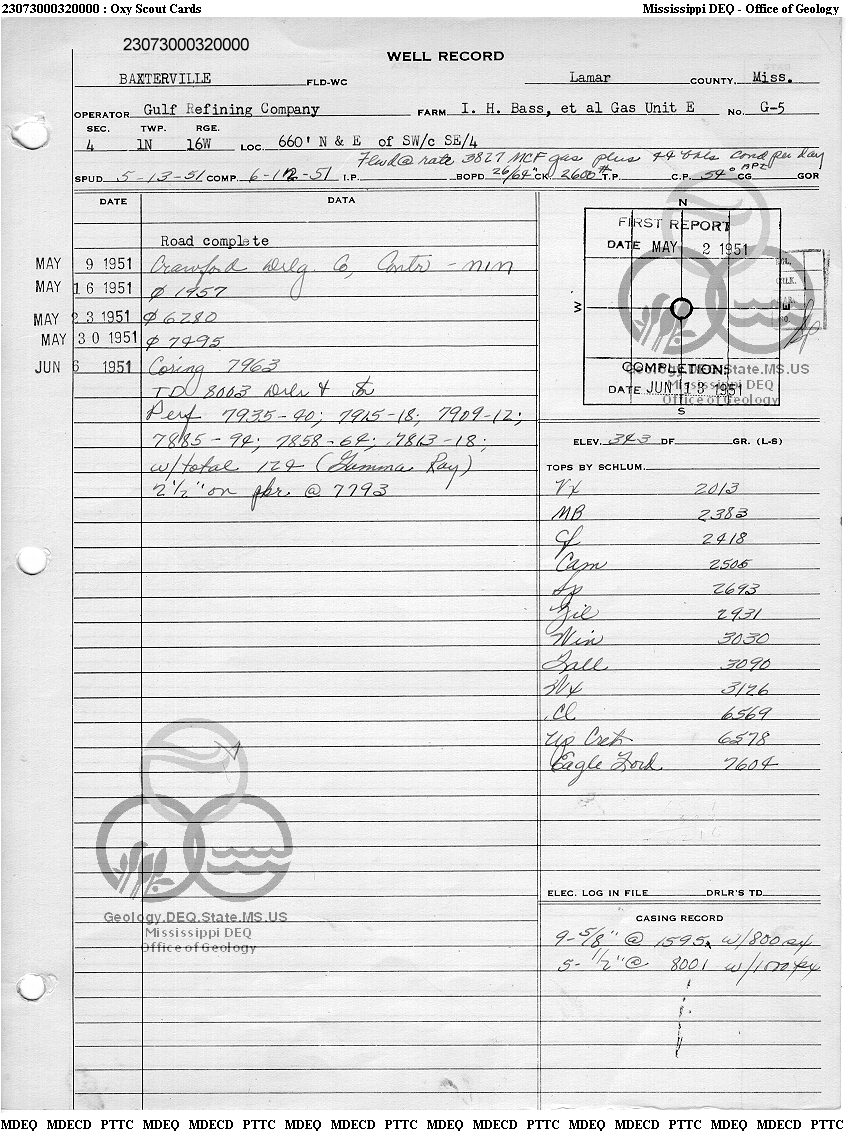 23073000320000 : Oxy Scout Cards Mississippi DEQ - Office of Geology
23073000320000
WELL RECORD
BAXTERVILLE FLD-WC Lamar COUNTY, Miss.
OPERATOR Gulf Refining Company FARM I. H. Bass, et al Gas Unit E No. G-5
SEC. TWP. RGE.
4 1N 16W LOC. 660' N & E of SW/c SE/4
Flwd @ rate 3827 MCF gas plus 44 bbls cond per day
SPUD 5-13-51 COMP. 6-12-51 I.P. BOPD 26/64" CK 2600# T.P. C.P. 54° API CG GOR
DATE DATA
N
FIRST REPORT
DATE MAY 2 1951
W E
COMPLETION:
DATE JUN 13 1951
S
Geology.DEQ.State.MS.US
Mississippi DEQ
Office of Geology
Road complete
MAY 9 1951 Crawford Drlg. Co, Contr - min
MAY 16 1951 @ 1957
MAY 23 1951 @ 6280
MAY 30 1951 @ 7495
JUN 6 1951 Coring 7963
TD 8003 Drlr &
Perf 7935-40; 7915-18; 7909-12;
7885-94; 7858-64; 7813-18;
w/total 124 (Gamma Ray)
2 1/2" on pkr @ 7793
ELEV. 343 DF GR. (L-S)
TOPS BY SCHLUM.
Vx 2013
MB 2383
Gf 2418
Cam 2505
Sp 2693
Zil 2931
Win 3030
Tall 3090
Wx 3126
Cl 6569
Up Cret 6578
Eagle Ford 7604
Geology.DEQ.State.MS.US
Mississippi DEQ
Office of Geology
ELEC. LOG IN FILE DRLR'S TD
CASING RECORD
9-5/8" @ 1595 w/800 sx
5-1/2" @ 8001 w/1000 sx
MDEQ MDECD PTTC MDEQ MDECD PTTC MDEQ MDECD PTTC MDEQ MDECD PTTC MDEQ MDECD PTTC MDEQ MDECD PTTC